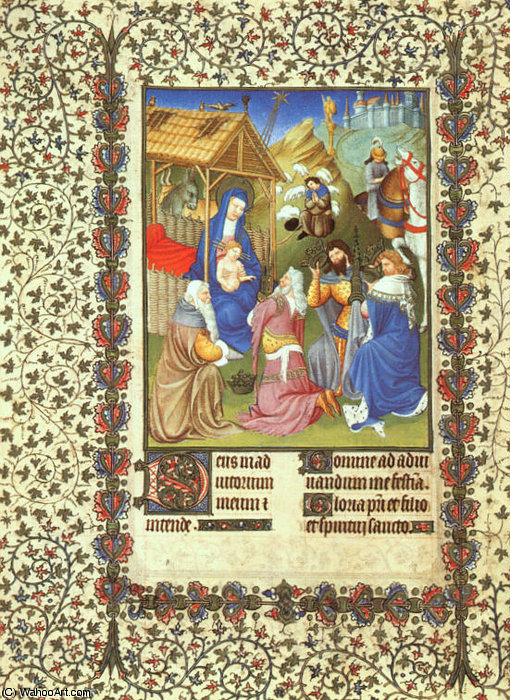 Deus in ad
iutorium
meum i
intende.
Domine ad adiu
uandum me festia.
Gloria pri et filio
et spiritui sancto.
(C) WahooArt.com